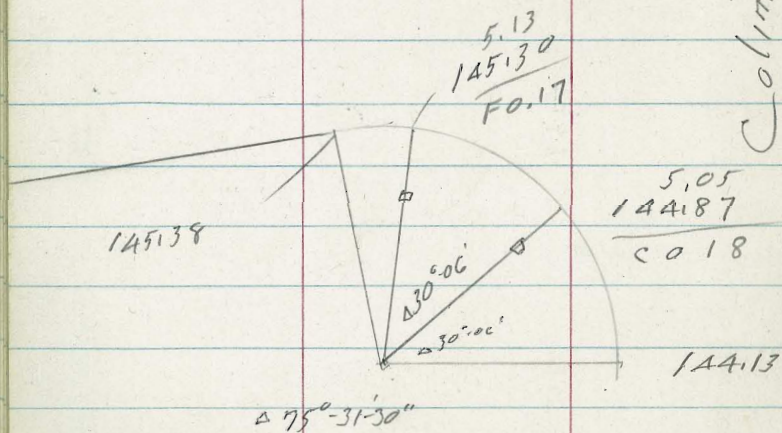 5.13
145.30
F0.17
5.05
144.87
C 0 18
145.38
Δ30°-06'
Δ30°-06'
144.13
Δ 75°-31'-30"